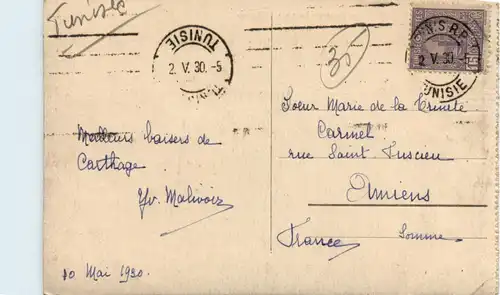 Tunisie
TUNISIE
2. V. 30.-5
30
TUNIS R.P.
2 V. 30.
TUNISIE
Meilleurs baisers de
Carthage
Yv. Malivoir
10 Mai 1930.
Soeur Marie de la Trinité
Carmel
rue Saint Fuscien
Amiens
France Somme